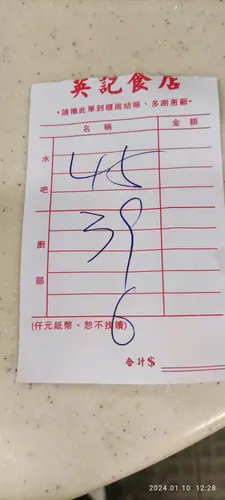 英記食店
*請機此單到櫃面結賬、多謝惠顧*
名稱 金額
水吧
45
39
廚部
6
(仟元紙幣、恕不找續)
合計$
2024.01.10 12:28